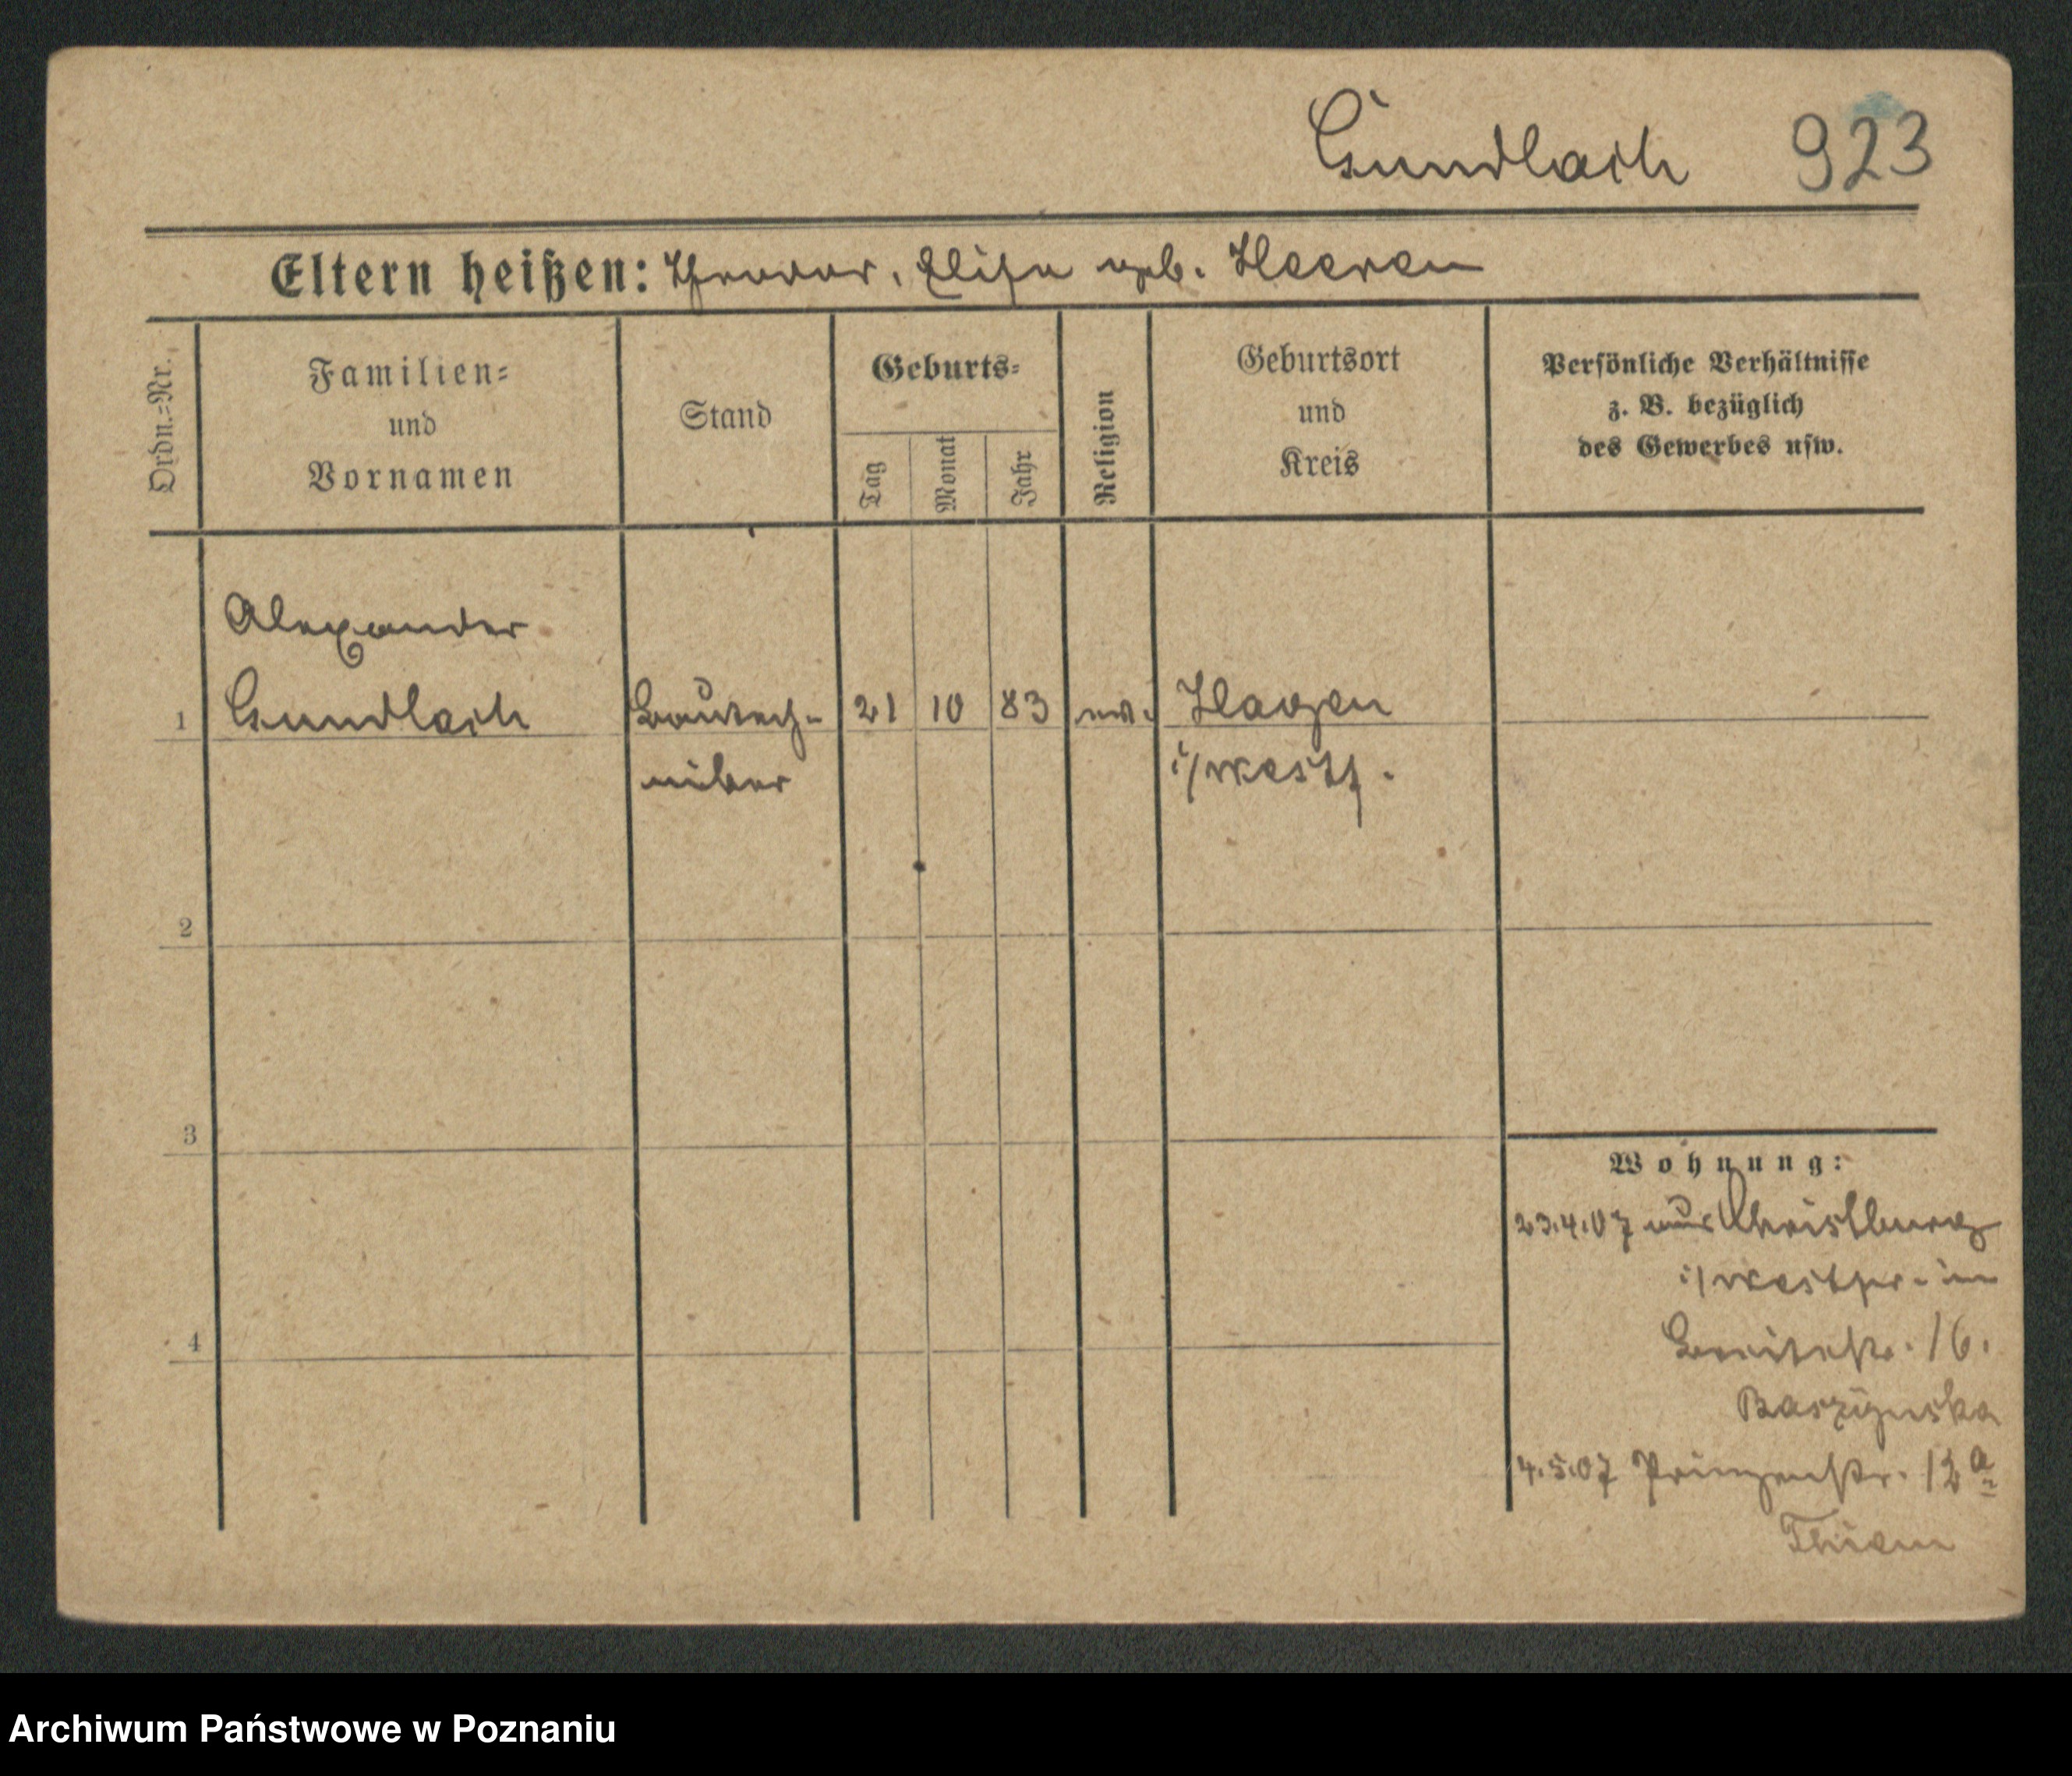 Gundlach 923
Eltern heißen: Theodor, Elise geb. Heeren
Ordn.=Nr.
Familien=
und
Vornamen
Stand
Geburts=
Tag
Monat
Jahr
Religion
Geburtsort
und
Kreis
Persönliche Verhältnisse
z. B. bezüglich
des Gewerbes usw.
Alexander
1 Gundlach Bautech- 21 10 83 ev. Hagen
niker i/Westf.
2
3
4
Wohnung:
23.4.07 aus Christburg
i/Westpr. in
Breitestr. 16.
4.5.07 Prinzenstr. 12a
Archiwum Państwowe w Poznaniu